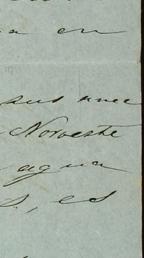 a en
sus ance
Noroeste
agua
s, es